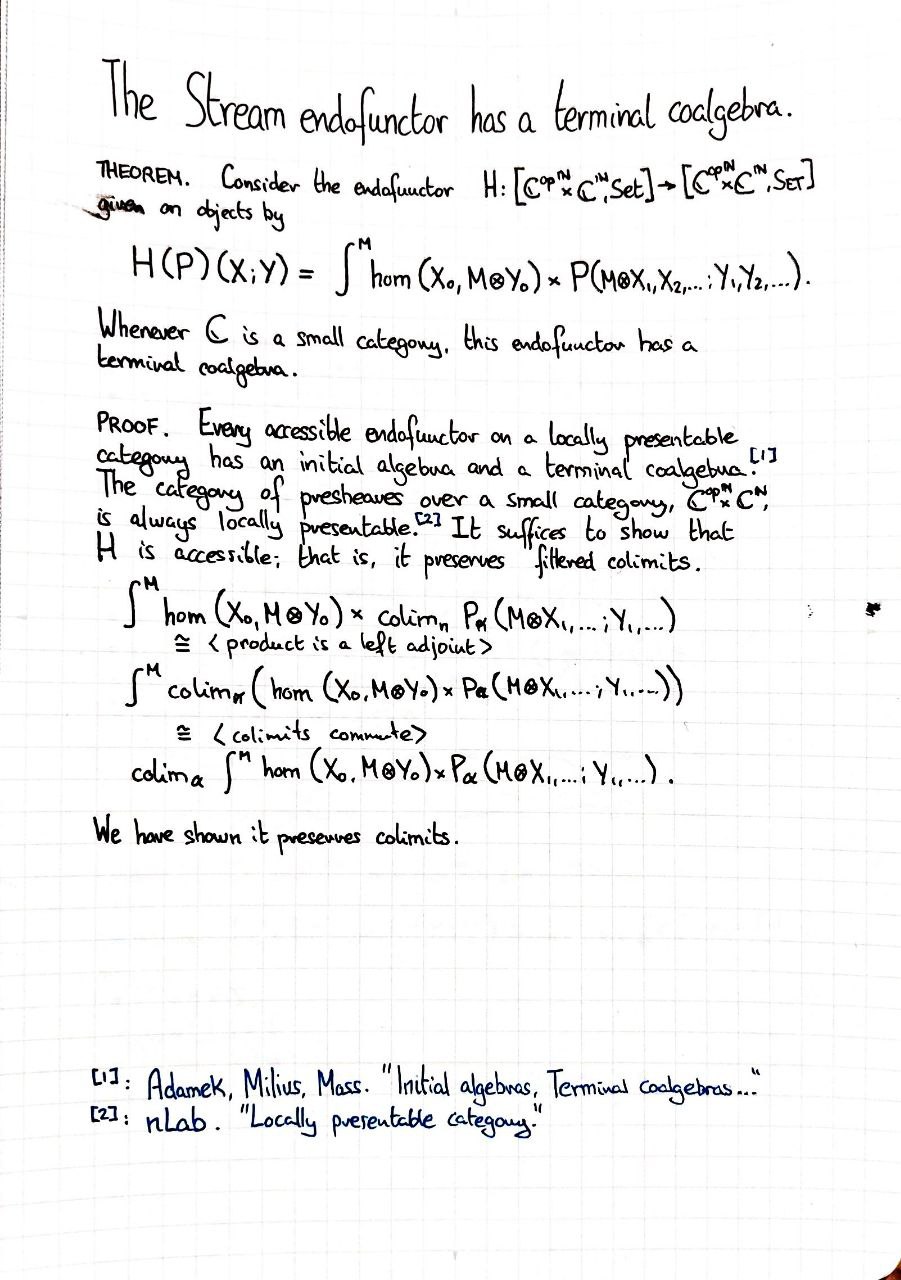 The Stream endofunctor has a terminal coalgebra.
THEOREM. Consider the endofunctor H: [ℂᵒᵖᴺ × ℂᴺ, Set] → [ℂᵒᵖᴺ × ℂᴺ, SET]
given on objects by
H(P)(X;Y) = ∫ᴹ hom(X₀, M⊗Y₀) × P(M⊗X₁, X₂, ... ; Y₁, Y₂, ...).
Whenever ℂ is a small category, this endofunctor has a
terminal coalgebra.
PROOF. Every accessible endofunctor on a locally presentable
category has an initial algebra and a terminal coalgebra.[1]
The category of presheaves over a small category, ℂᵒᵖᴺ × ℂᴺ,
is always locally presentable.[2] It suffices to show that
H is accessible; that is, it preserves filtered colimits.
∫ᴹ hom(X₀, M⊗Y₀) × colimₙ Pα(M⊗X₁, ... ; Y₁, ...)
≅ <product is a left adjoint>
∫ᴹ colimα(hom(X₀, M⊗Y₀) × Pα(M⊗X₁, ... ; Y₁, ...))
≅ <colimits commute>
colimα ∫ᴹ hom(X₀, M⊗Y₀) × Pα(M⊗X₁, ... ; Y₁, ...).
We have shown it preserves colimits.
[1]: Adamek, Milius, Moss. "Initial algebras, Terminal coalgebras..."
[2]: nLab. "Locally presentable category."